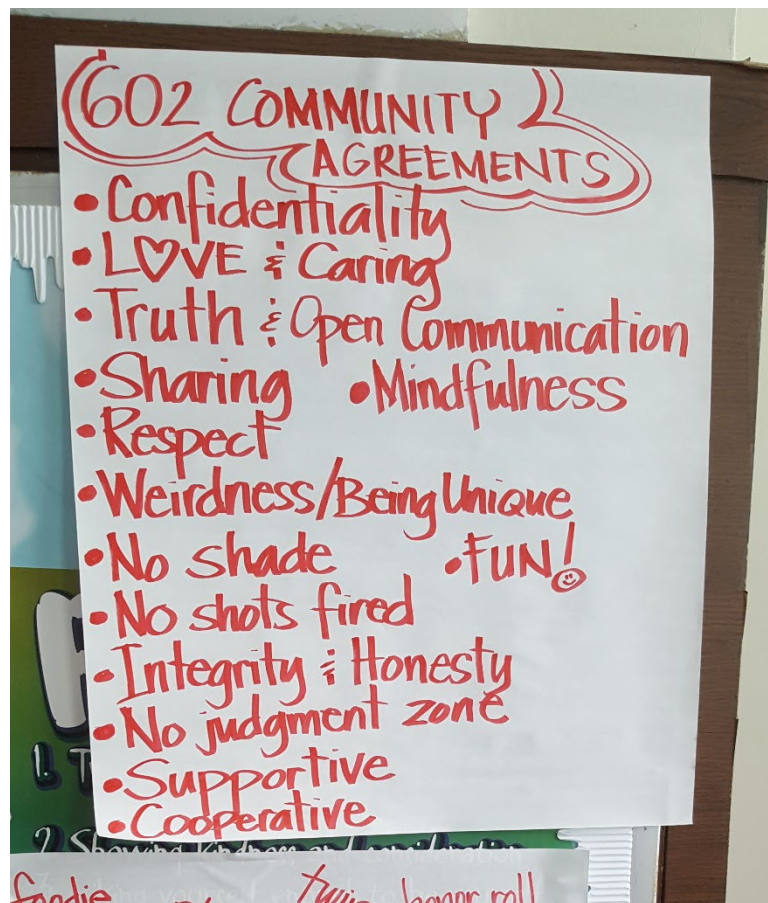 602 COMMUNITY
AGREEMENTS
• Confidentiality
• LOVE & Caring
• Truth & Open Communication
• Sharing • Mindfulness
• Respect
• Weirdness/Being Unique
• No shade • FUN!
• No shots fired
• Integrity & Honesty
• No judgment zone
• Supportive
• Cooperative
1. T
2. Showing kindness and consideration
foodie twin honor roll